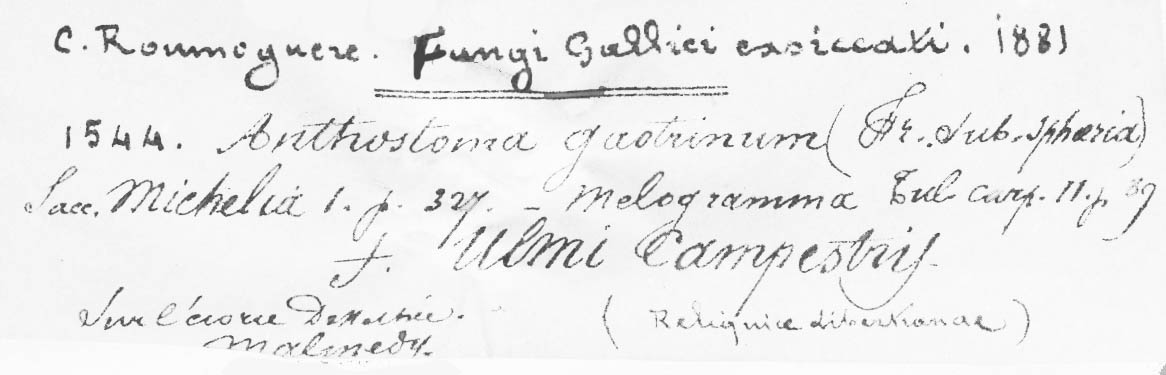 C. Roumeguere. Fungi Gallici exsiccati. 1881
1544. Anthostoma gastrinum (Fr. sub. sphæria)
Sacc. Michelia 1. p. 327. – Melogramma Tul carp. II. p 89
f. Ulmi Campestris
Sur l'écorce Dessechée.
Malmedy.
(Reliquiæ Libertianae)